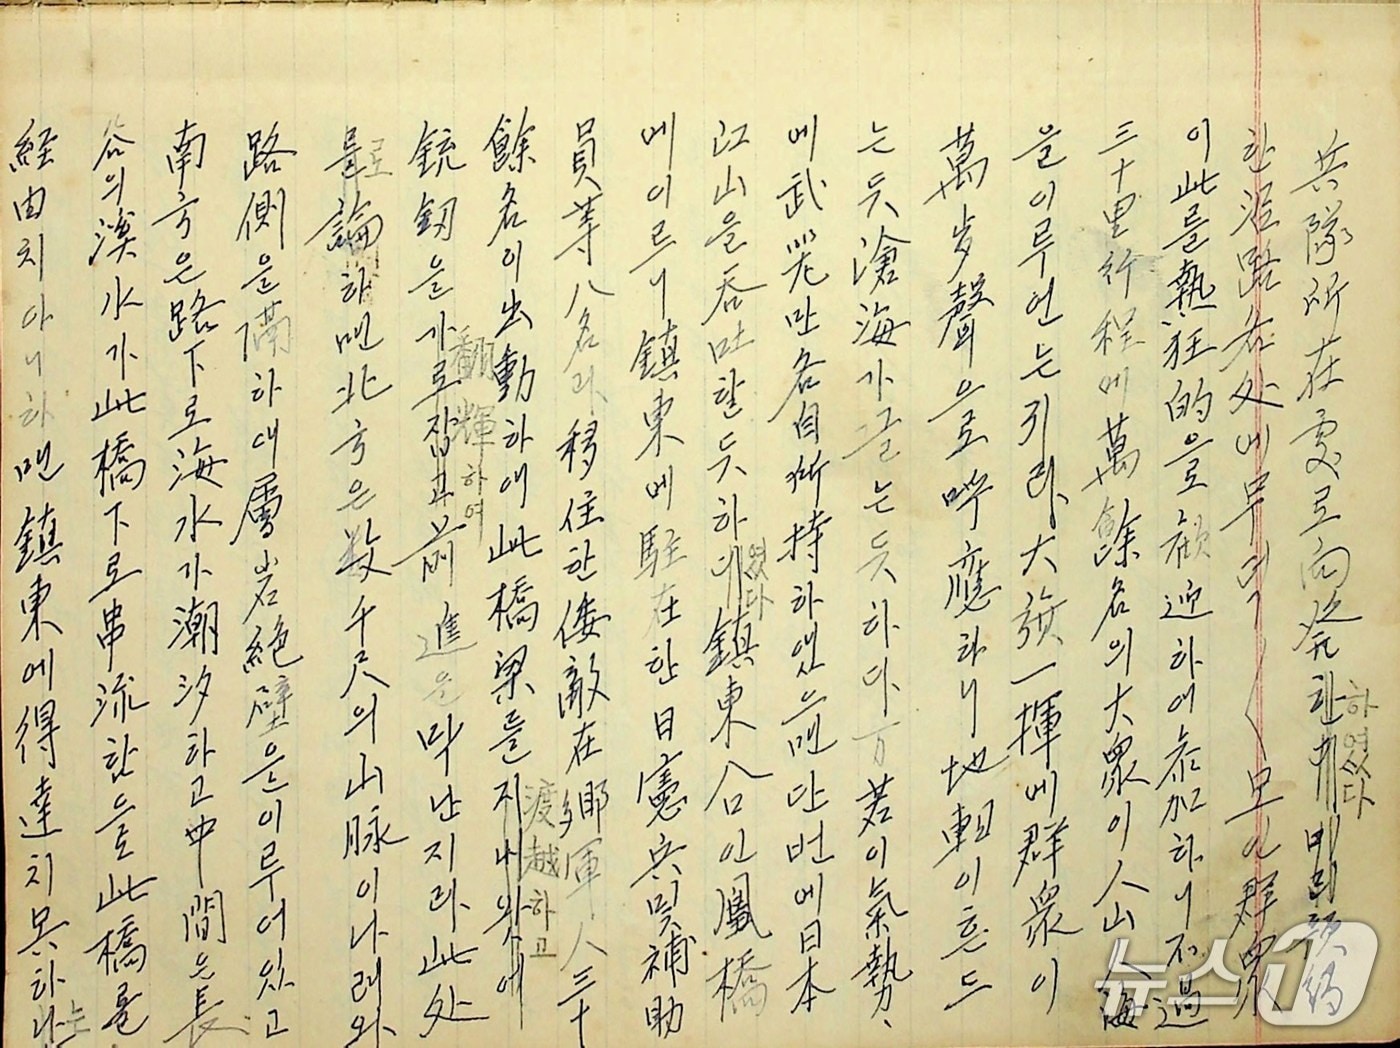 兵隊所在處로向발한 하였다
한沿路各处에무덕〱모인群衆
이此를熱狂的으로歡迎하여参加하니不過
三十里行程에萬餘名의大衆이人山人海
을이루언는지라大旗一揮에群衆이
萬岁聲으로呼應하니地軸이흔드
는듯滄海가끌는듯하다万若이氣勢、
에武器만各自所持하앳으면단번에日本
江山을呑吐할듯하 였다 鎭東八口인鳳橋
에이르니鎭東에駐在한日憲兵및補助
員等八名과移住한倭敵在鄕軍人三十
餘名이出動하여此橋梁를 渡越하고
銃釖을가로잡고 翻輝하여 前進을막난지라此処
를論하면北方은数千尺의山脉이나려와
路側을隔하대層岩絶壁을이루어있고
南方은路下로海水가潮汐하고中間은長
谷의溪水가此橋下로串流함으로此橋를
経由치아니하면鎭東에得達치못하나 는
뉴스1